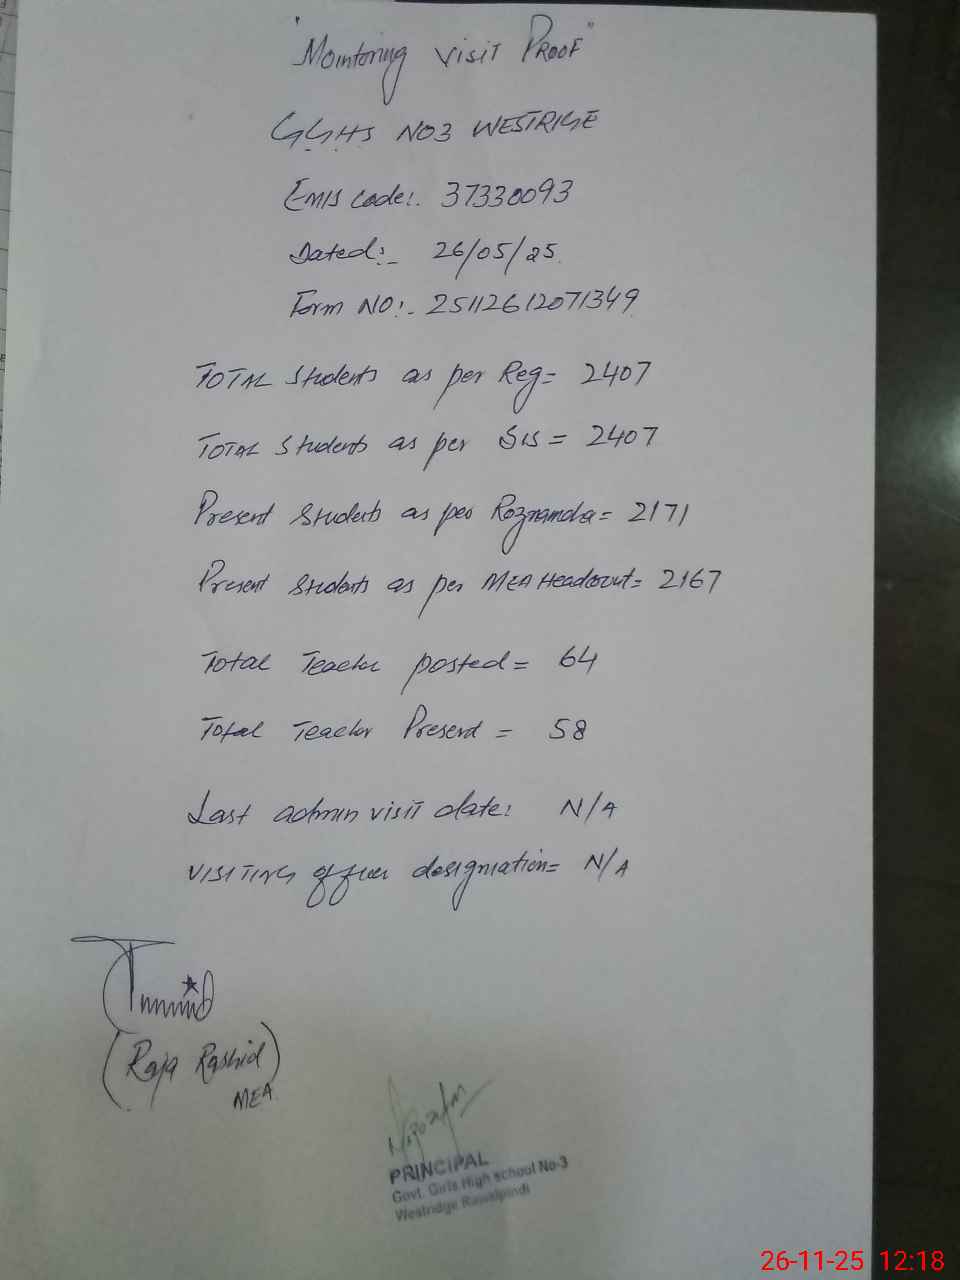 "Monitoring Visit PROOF"
GGHS NO3 WESTRIGE
EMIS Code:. 37330093
Dated:- 26/05/25.
Form NO:. 25112612071349
TOTAL Students as per Reg= 2407
TOTAL Students as per SIS = 2407
Present Students as per Roznamcha= 2171
Present Students as per MEA Headcount= 2167
Total Teacher posted= 64
Total Teacher Present = 58
Last admin visit date: N/A
VISITING officer designation= N/A
(Raja Rashid)
MEA
PRINCIPAL
Govt. Girls High school No-3
Westridge Rawalpindi
26-11-25 12:18